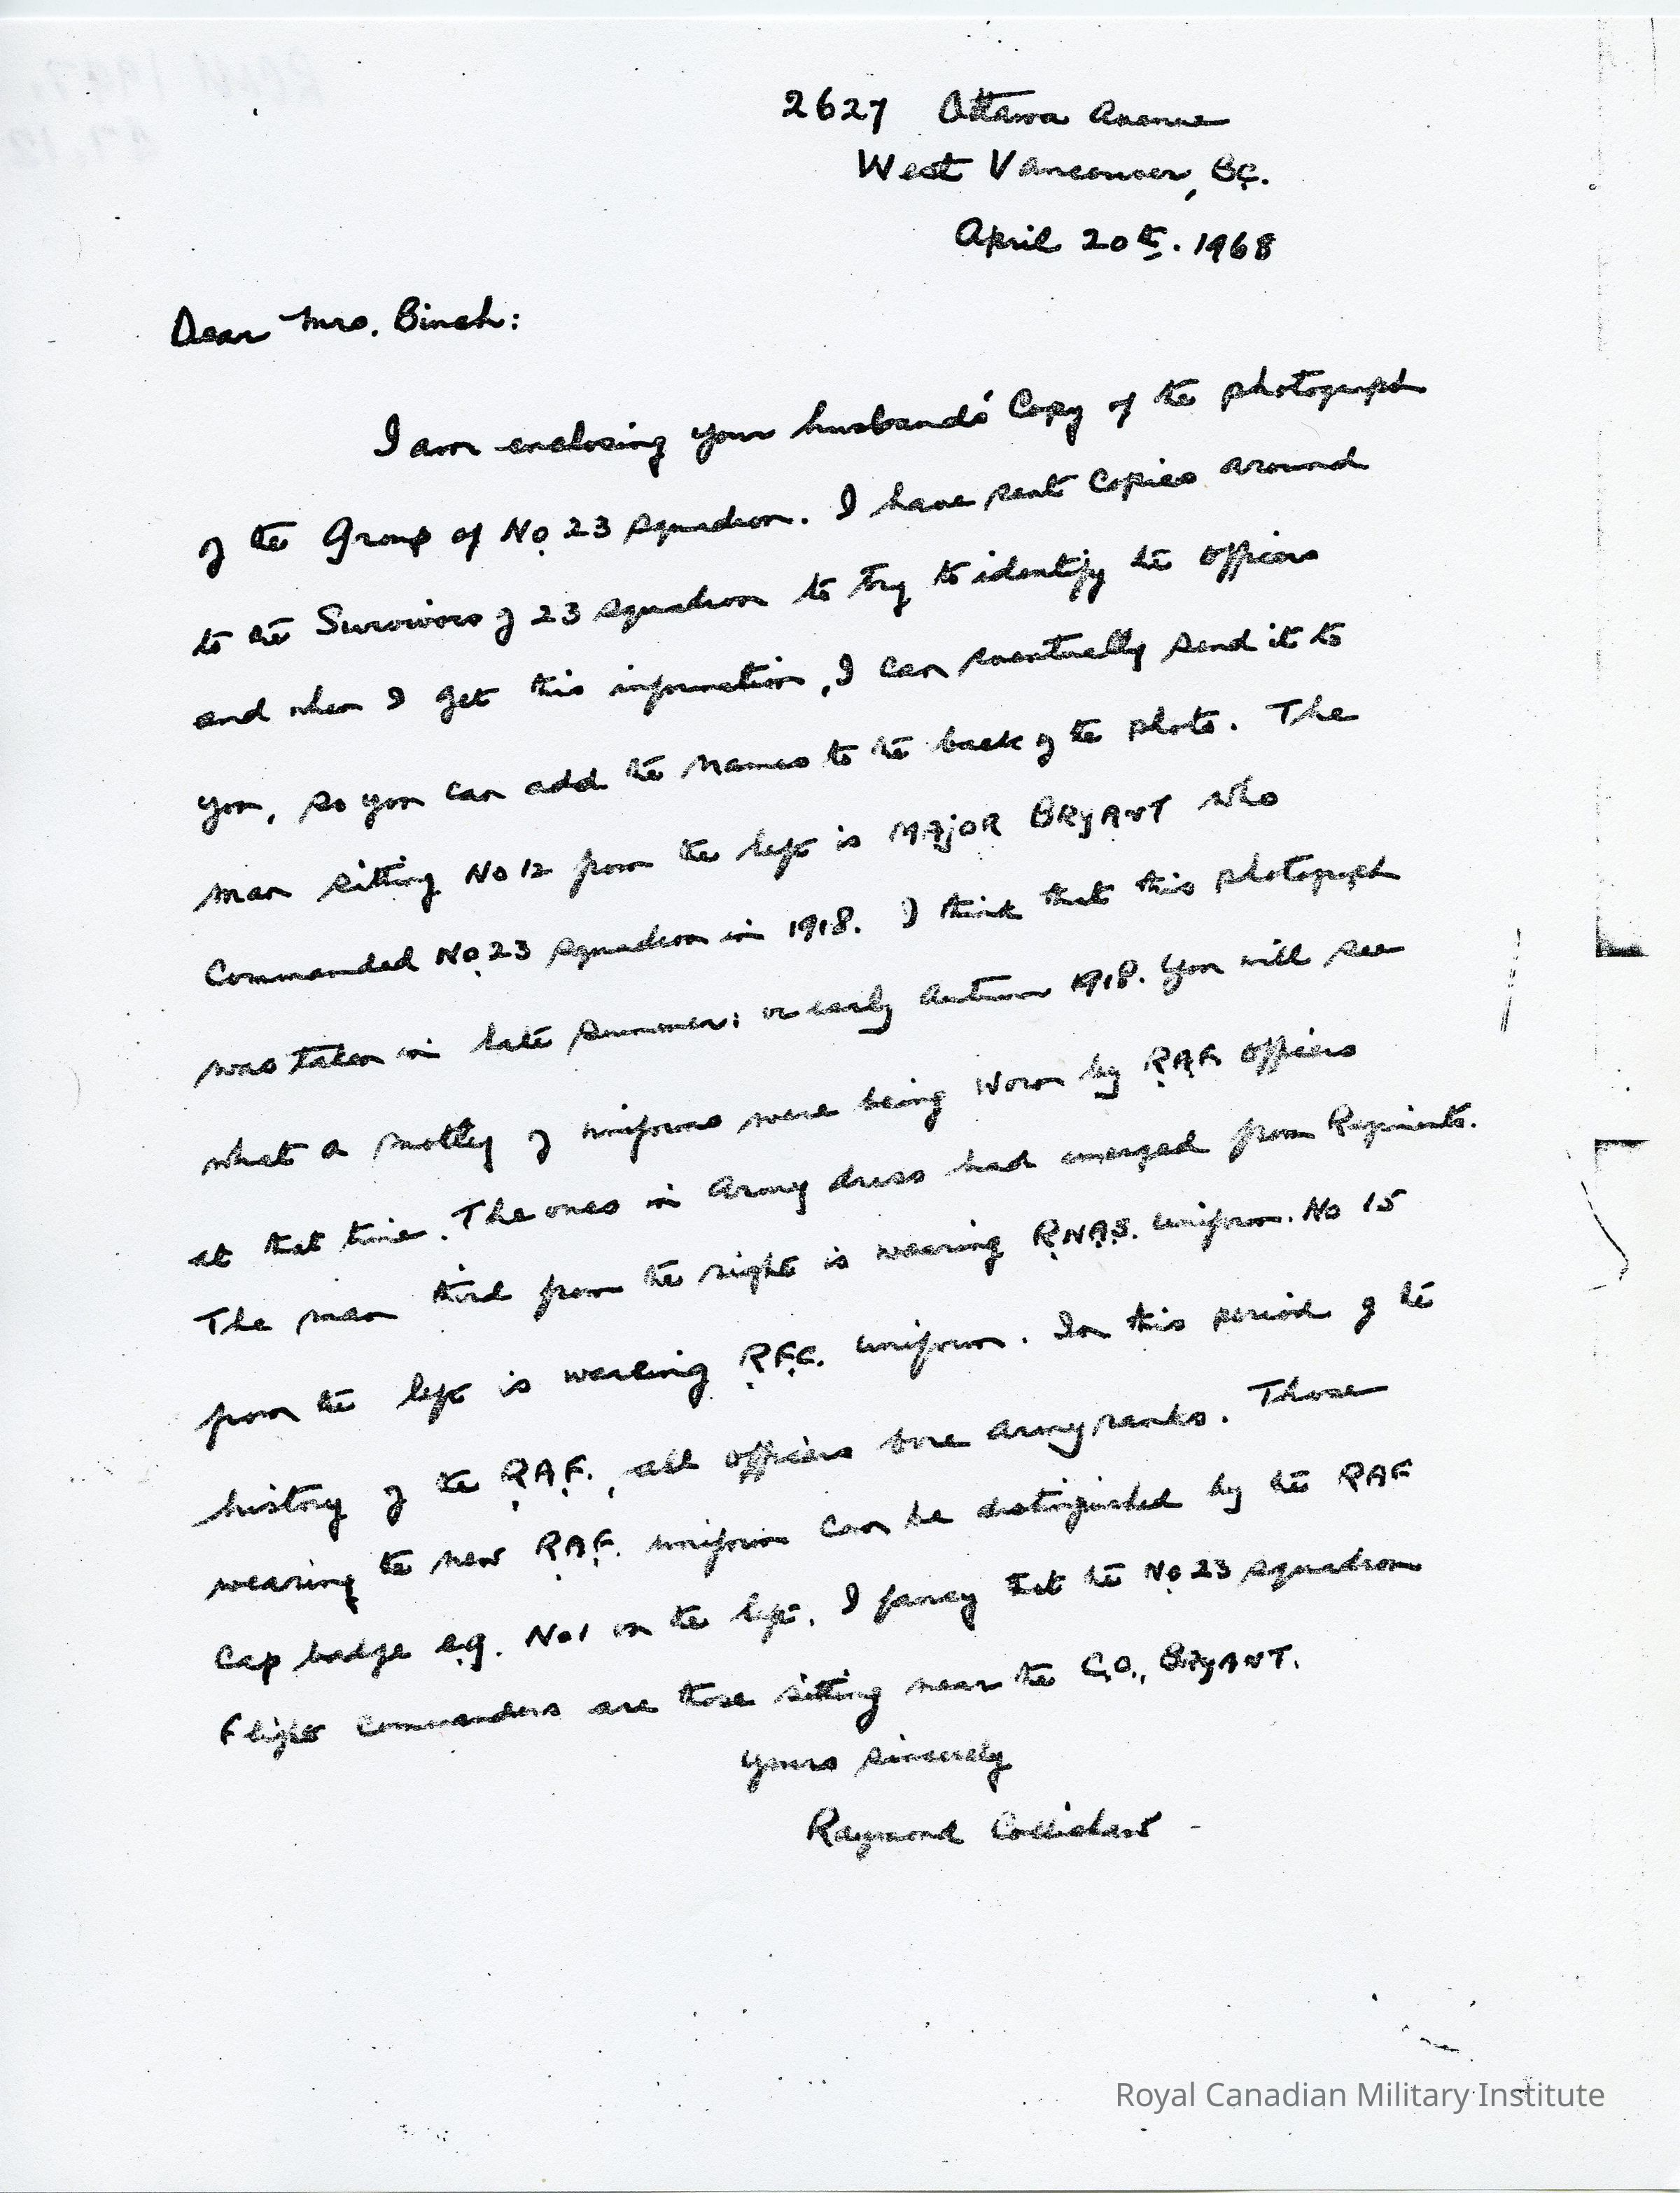 2627 Ottawa Avenue
West Vancouver, B.C.
April 20th. 1968
Dear Mrs. Binch:
I am enclosing your husbands' Copy of the photograph
of the Group of No 23 Squadron. I have sent Copies around
to the Survivors of 23 Squadron to try to identify the officers
and when I get this information, I can eventually send it to
you, so you can add the names to the back of the photo. The
man sitting No 12 from the left is MAJOR BRYANT who
Commanded No 23 Squadron in 1918. I think that this photograph
was taken in late summer; or early Autumn 1918. You will see
what a motley of uniforms were being worn by R.A.F. officers
at that time. The ones in Army dress had emerged from Regiments.
The man third from the right is wearing R.N.A.S. uniform. No 15
from the left is wearing R.F.C. uniform. In this period of the
history of the R.A.F., all officers bore Army ranks. Those
wearing the new R.A.F. uniform can be distinguished by the RAF
Cap badge e.g. No 1 on the left. I fancy that the No 23 Squadron
Flight Commanders are those sitting near the C.O., BRYANT.
Yours sincerely
Raymond Collishaw -
Royal Canadian Military Institute